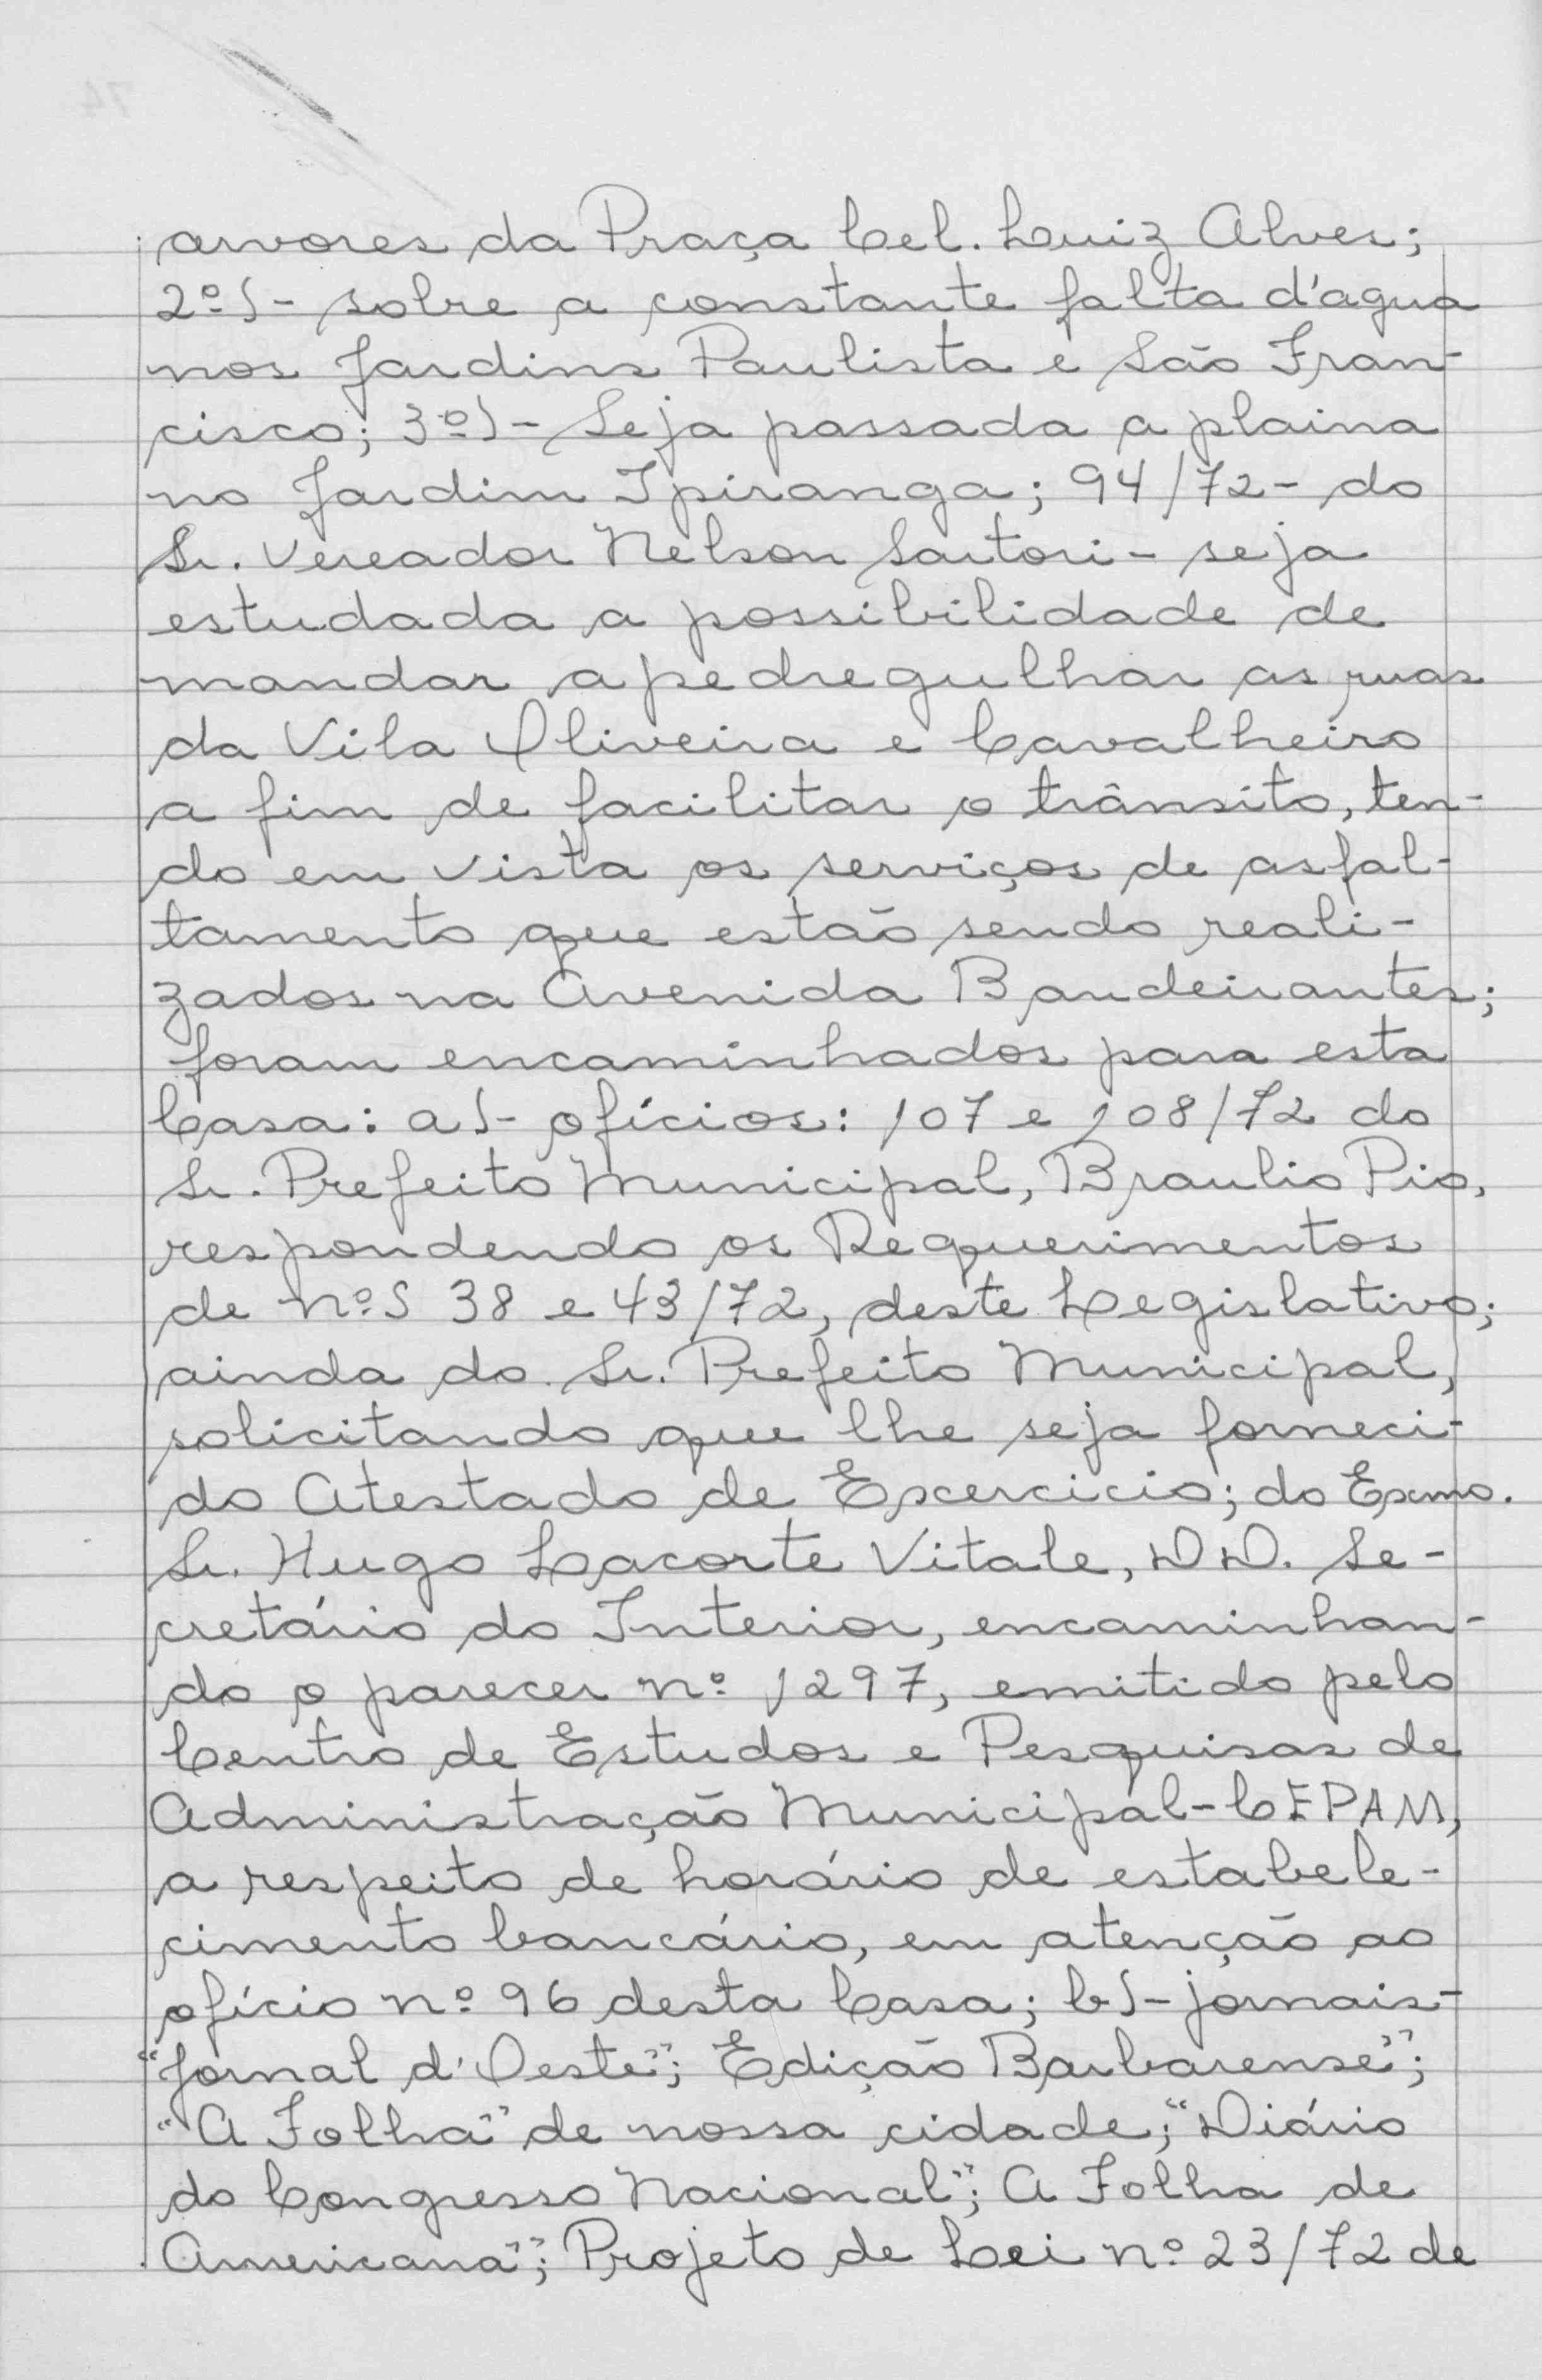 arvores da Praça Cel. Luiz Alves;
2º)- sobre a constante falta d'agua
nos Jardins Paulista e São Fran-
cisco; 3º)- Seja passada a plaina
no Jardim Ipiranga; 94/72- do
Sr. Vereador Nelson Sartori- seja
estudada a possibilidade de
mandar apedregulhar as ruas
da Vila Oliveira e Cavalheiro
a fim de facilitar o trânsito, ten-
do em vista os serviços de asfal-
tamento que estão sendo reali-
zados na Avenida Bandeirantes;
foram encaminhados para esta
Casa: a)- ofícios: 107 e 108/72 do
Sr. Prefeito Municipal, Braulio Pio,
respondendo os Requerimentos
de nºs 38 e 43/72, deste Legislativo;
ainda do Sr. Prefeito Municipal,
solicitando que lhe seja forneci-
do Atestado de Excercicio; do Exmo.
Sr. Hugo Lacorte Vitale, DD. Se-
cretário do Interior, encaminhan-
do o parecer nº 1297, emitido pelo
Centro de Estudos e Pesquisas de
Administração Municipal-CEPAM,
a respeito de horário de estabele-
cimento bancário, em atenção ao
ofício nº 96 desta Casa; b)- jornais-
"Jornal d'Oeste"; Edição Barbarense";
"A Folha" de nossa cidade; "Diário
do Congresso Nacional"; A Folha de
Americana"; Projeto de Lei nº 23/72 de